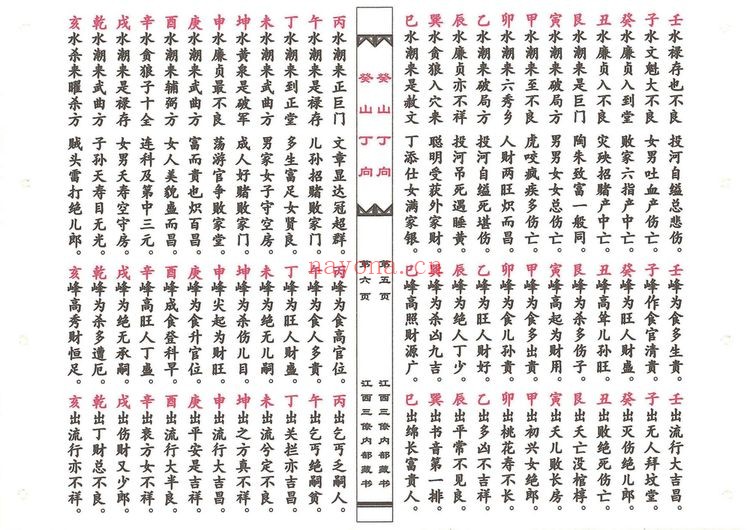 壬水禄存也不良 投河自缢总悲伤。 壬峰为食多生贵。 壬出流行大吉昌。
子水文魁大不良 女男吐血产伤亡。 子峰作食官清贵。 子出无人拜坟堂。
癸水廉贞入到堂 败家六指产中亡。 癸峰为旺人财盛。 癸出灭伤绝儿郎。
丑水廉贞入不良 灾殃招赌产中亡。 丑峰高耸儿孙旺。 丑出败绝死伤亡。
艮水潮来是巨门 陶朱致富一般同。 艮峰为杀多伤子。 艮出夭亡没棺椁。
寅水潮来破局方 男男女女总伤亡。 寅峰高起为财用。 寅出夭儿败长房。
甲水潮来至不良 虎咬疯疾多伤亡。 甲峰为食多出贵。 甲出初兴女绝郎。
卯水潮来六秀乡 人财两旺炽而昌。 卯峰为食儿孙贵。 卯出桃花寿不长。
乙水潮来破局方 投河自缢死堪伤。 乙峰为旺人财好。 乙出多凶不吉祥。
辰水廉贞亦不祥 投河吊死遇睡黄。 辰峰为绝人丁少。 辰出平常不见良。
巽水贪狼入穴来 聪明受获外家财。 巽峰为杀凶九吉。 巽出书音第一排。
巳水潮来是赦文 丁添仕女满家银。 巳峰高照财源广。 巳出绵长富贵人。
癸山丁向 第五页 江西三僚内部藏书
癸山丁向 第六页 江西三僚内部藏书
丙水潮来正巨门 文章显达冠超群。 丙峰为食高官位。 丙出乞丐乏嗣人。
午水潮来是禄存 儿孙招赌败家门。 午峰为食人多贵。 午出乞丐绝嗣贫。
丁水潮来到正堂 多生富足女贤良。 丁峰为旺人财盛。 丁出关拦亦吉昌。
未水潮来武曲方 男家女子守空房。 未峰为绝无儿嗣。 未出流兮定不良。
坤水黄泉是破军 成人好赌败家门。 坤峰为杀伤儿目。 坤出之方真不祥。
申水廉贞最不良 荡游官争败家堂。 申峰尖起为财旺。 申出流行大吉昌。
庚水潮来武曲方 富而贵也炽百昌。 庚峰为食升官位。 庚出平安是吉祥。
酉水潮来辅弼方 女人美貌盛而昌。 酉峰成食登科早。 酉出流行大半良。
辛水贪狼子十全 连科及第中三元。 辛峰高旺人丁盛。 辛出衰方女不祥。
戌水潮来是禄存 女男夭寿空守房。 戌峰为绝无承嗣。 戌出伤财又少郎。
乾水潮来武曲方 子孙夭寿目无光。 乾峰为杀多遭厄。 乾出丁财总不良。
亥水杀来曜杀方 贼头雷打绝儿郎。 亥峰高秀财恒足。 亥出流行亦不祥。
nayona.cn